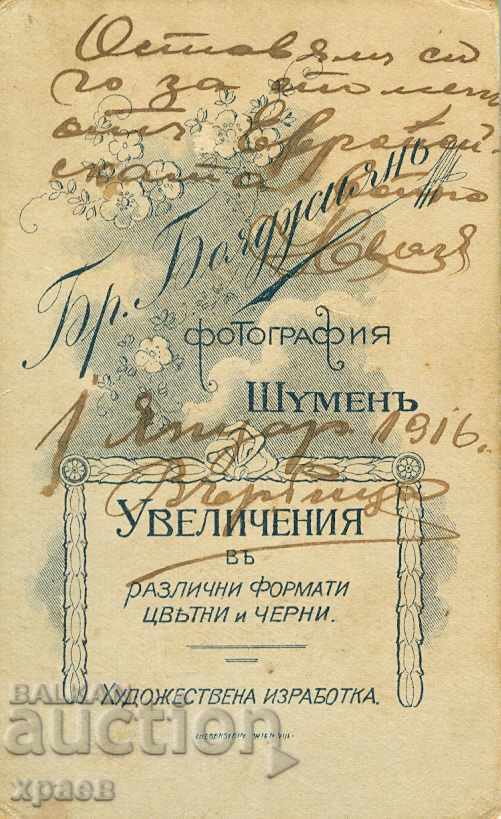 Оставямъ си
го за споменъ
отъ Европей-
ската война
Бр. Боядусиянъ
фотография
Шуменъ
1 Януар 1916
Увеличения
въ
различни формати
цвѣтни и черни.
Художествена изработка.
WIEN VIII.
BALKAN
auction
храев